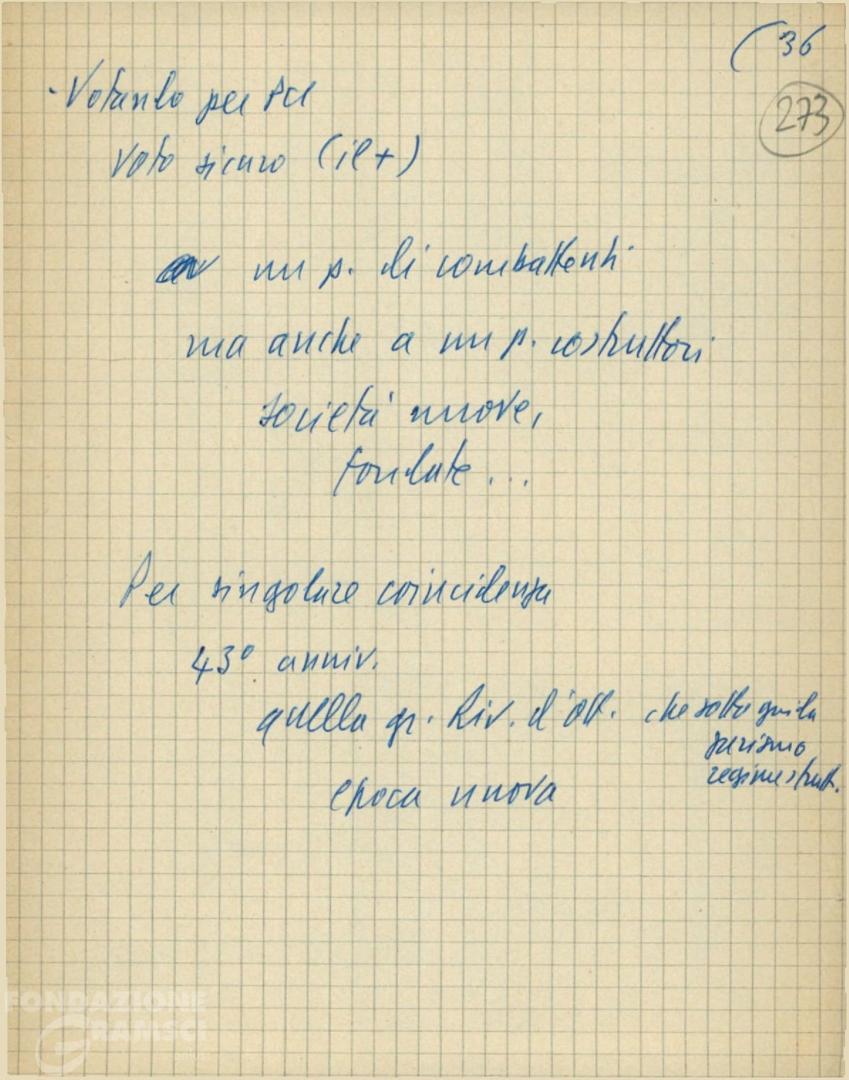 (36
273
- Votando per PCI
voto sicuro (il +)
un p. di combattenti
ma anche a un p. costruttori
società nuove,
fondate...
Per singolare coincidenza
43° anniv.
quella gr. Riv. d'Ott. che sotto guida
zarismo
regime sfrutt.
epoca nuova
FONDAZIONE
GRAMSCI